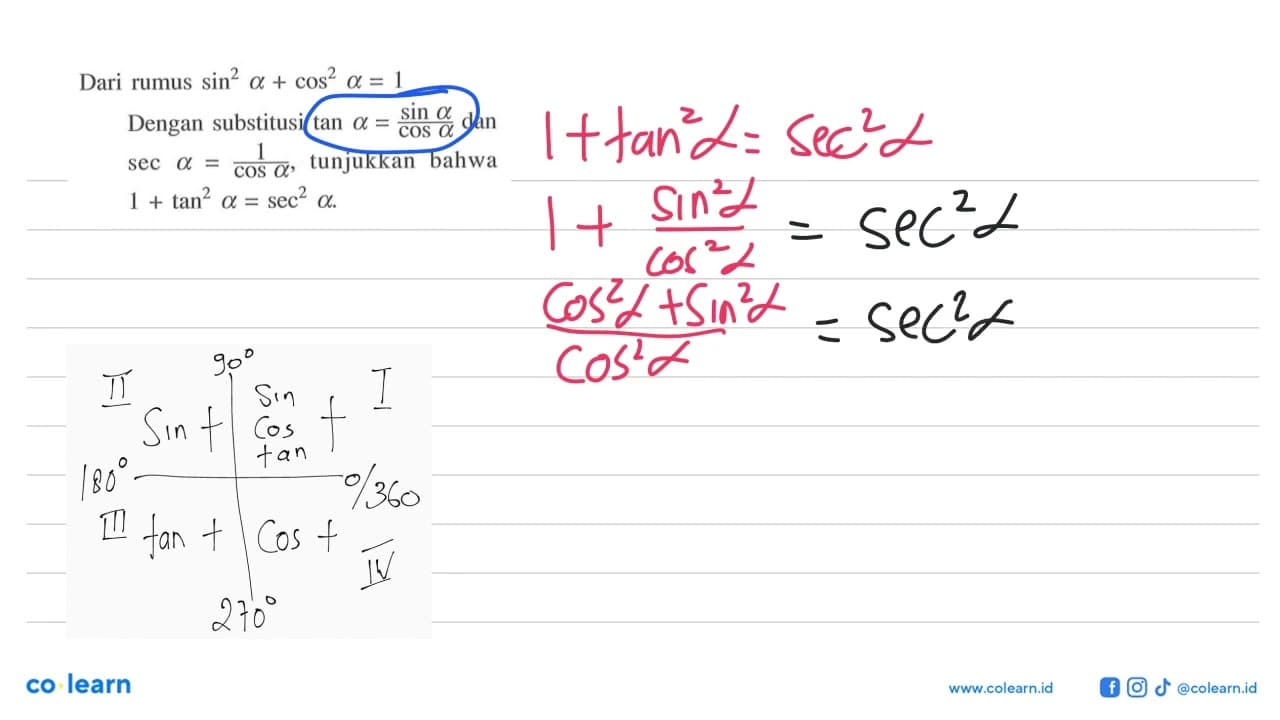 Dari rumus sin² α + cos² α = 1
Dengan substitusi tan α = sin α / cos α dan
sec α = 1 / cos α, tunjukkan bahwa
1 + tan² α = sec² α.
1 + tan² α = sec² α
1 + sin² α / cos² α = sec² α
cos² α + sin² α / cos² α = sec² α
90°
II
Sin +
Sin
Cos
tan
+
I
180°
0/360
III
tan +
Cos +
IV
270°
co learn
www.colearn.id
@colearn.id